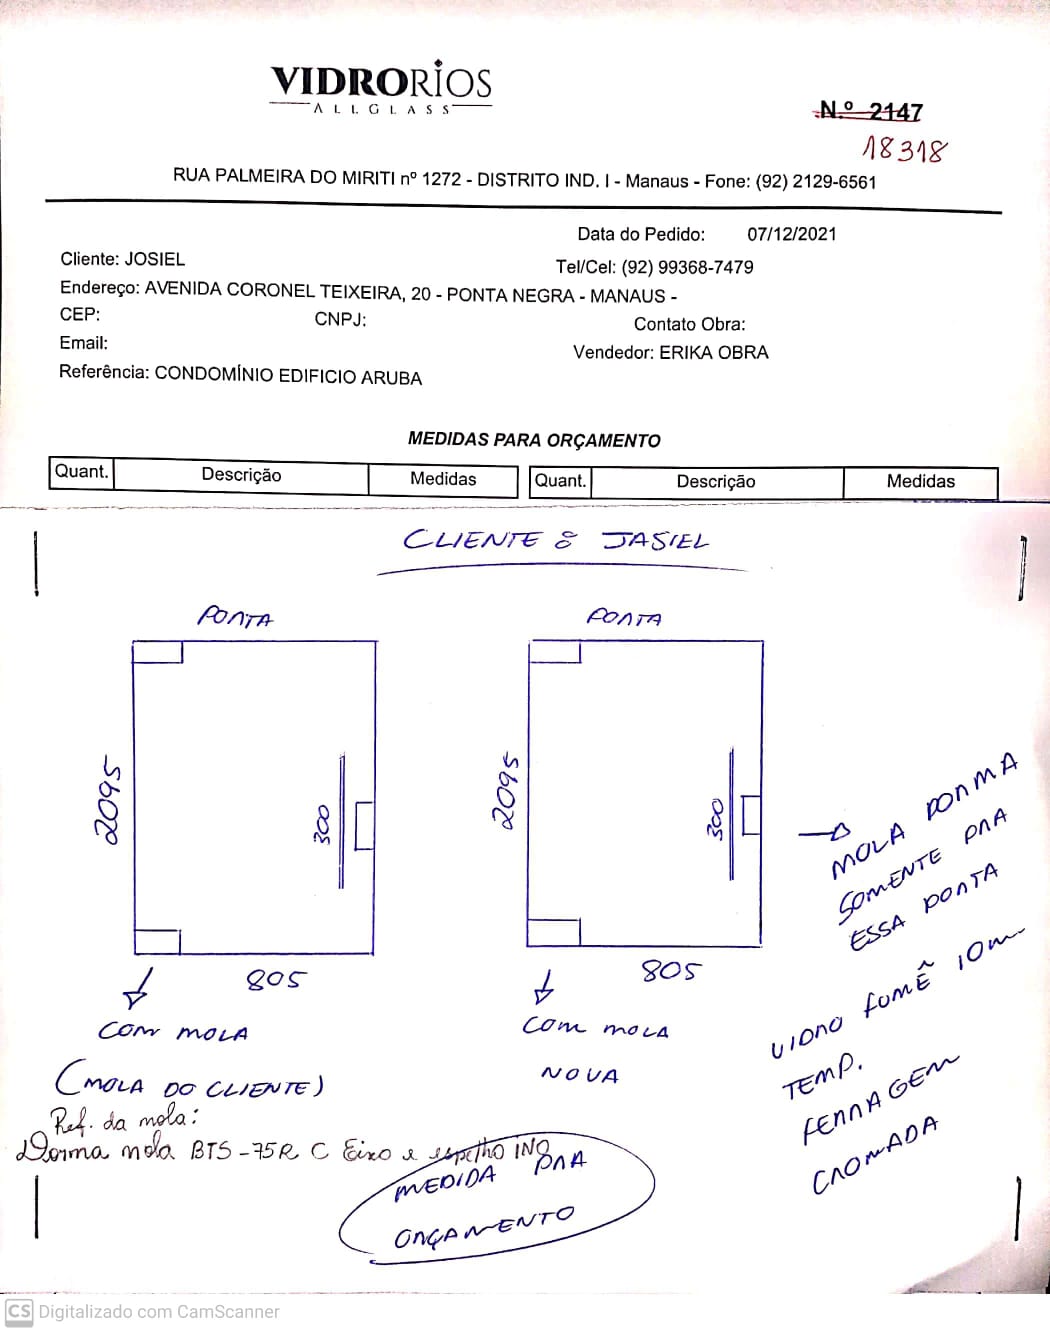 VIDRORIOS
ALLGLASS
N.º 2147
18318
RUA PALMEIRA DO MIRITI nº 1272 - DISTRITO IND. I - Manaus - Fone: (92) 2129-6561
Data do Pedido: 07/12/2021
Cliente: JOSIEL
Tel/Cel: (92) 99368-7479
Endereço: AVENIDA CORONEL TEIXEIRA, 20 - PONTA NEGRA - MANAUS -
CEP: CNPJ: Contato Obra:
Email:
Vendedor: ERIKA OBRA
Referência: CONDOMÍNIO EDIFICIO ARUBA
MEDIDAS PARA ORÇAMENTO
Quant. Descrição Medidas Quant. Descrição Medidas
CLIENTE : JASIEL
PORTA PORTA
2095 300 2095 300
805 805
COM MOLA
(MOLA DO CLIENTE)
Ref. da mola:
Dorma mola BTS-75R C Eixo e espelho INO
COM MOLA
NOVA
MOLA DORMA
SOMENTE PRA
ESSA PORTA
VIDRO FUMÊ 10m
TEMP.
FERRAGEM
CROMADA
MEDIDA PRA
ORÇAMENTO
CS Digitalizado com CamScanner